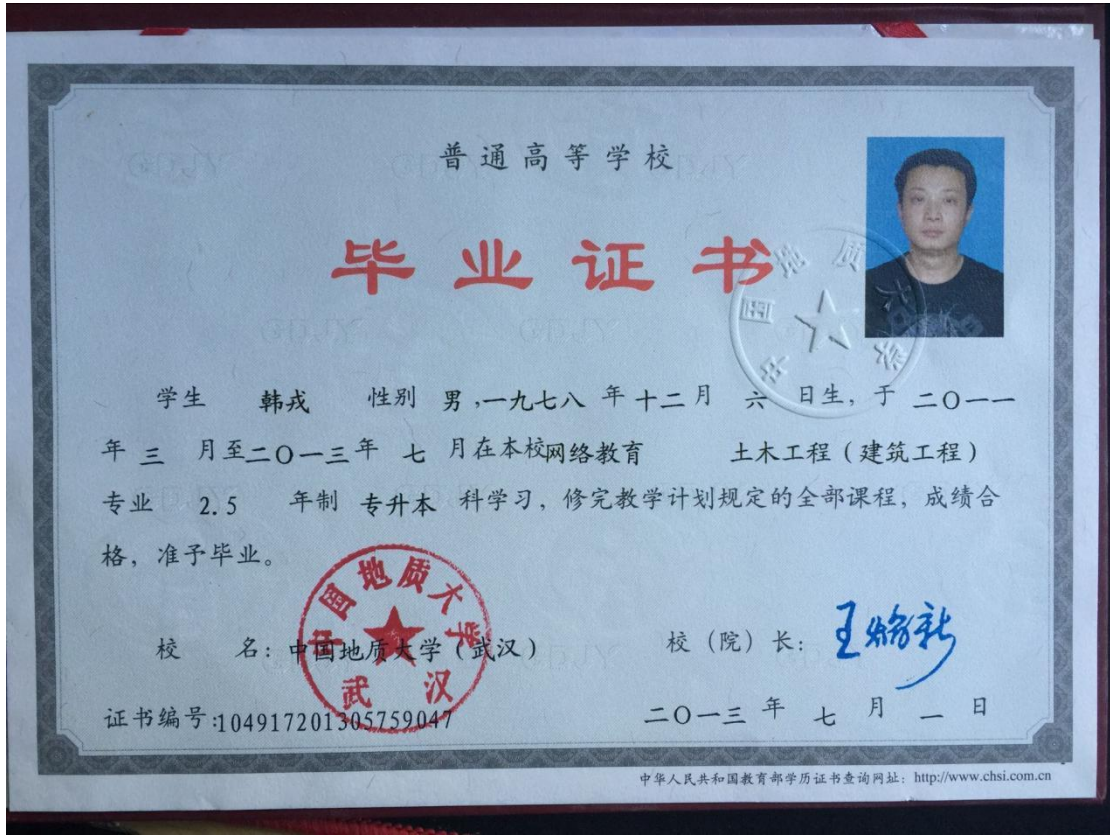 普通高等学校
毕业证书
学生 韩戎 性别 男,一九七八 年 十二 月 六 日生, 于 二〇一一
年 三 月至二〇一三年 七 月在本校网络教育 土木工程(建筑工程)
专业 2.5 年制 专升本 科学习, 修完教学计划规定的全部课程, 成绩合
格, 准予毕业。
中国地质大学
中国地质大学
武汉
校 名: 中国地质大学(武汉) 校(院)长: 王焰新
证书编号:104917201305759047 二〇一三 年 七 月 一 日
中华人民共和国教育部学历证书查询网址: http://www.chsi.com.cn